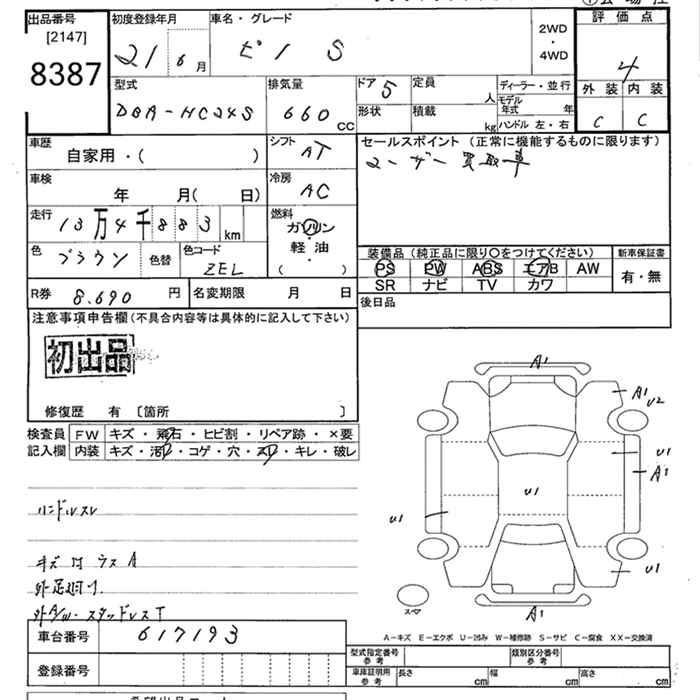 出品番号
[2147]
8387
初度登録年月
21 6月
車名・グレード
ピノ S
2WD
・
4WD
評価点
4
外装 内装
C C
型式
DBA-HC24S
排気量
660 CC
ドア 5
形状
定員 人
積載 kg
ディーラー・並行
モデル年式 年
ハンドル 左・右
車歴
自家用・( )
シフト AT
セールスポイント (正常に機能するものに限ります)
ユーザー買取車
車検
年 月( 日)
冷房 AC
走行
13万4千883 km
燃料
ガソリン
軽・油
・
( )
色 ブラウン 色替
色コード ZEL
装備品 (純正品に限り○をつけてください)
PS PW ABS エアB AW
SR ナビ TV カワ
新車保証書
有・無
R券 8,690 円
名変期限 月 日
後日品
注意事項申告欄 (不具合内容等は具体的に記入して下さい)
初出品
修復歴 有 〔箇所 〕
検査員記入欄
FW キズ・飛石・ヒビ割・リペア跡・×要
内装 キズ・汚レ・コゲ・穴・スレ・キレ・破レ
ハンドルスレ
キズ凹ウスA
外足廻サ
外A/W・スタッドレスT
A1
A1
U2
U1
A1
U1
U1
U1
A1
スペア
A-キズ E-エクボ U-凹み W-補修跡 S-サビ C-腐食 XX-交換済
車台番号 617193
登録番号
型式指定番号 参考
類別区分番号 参考
車庫証明用 参考
長さ cm
幅 cm
高さ cm